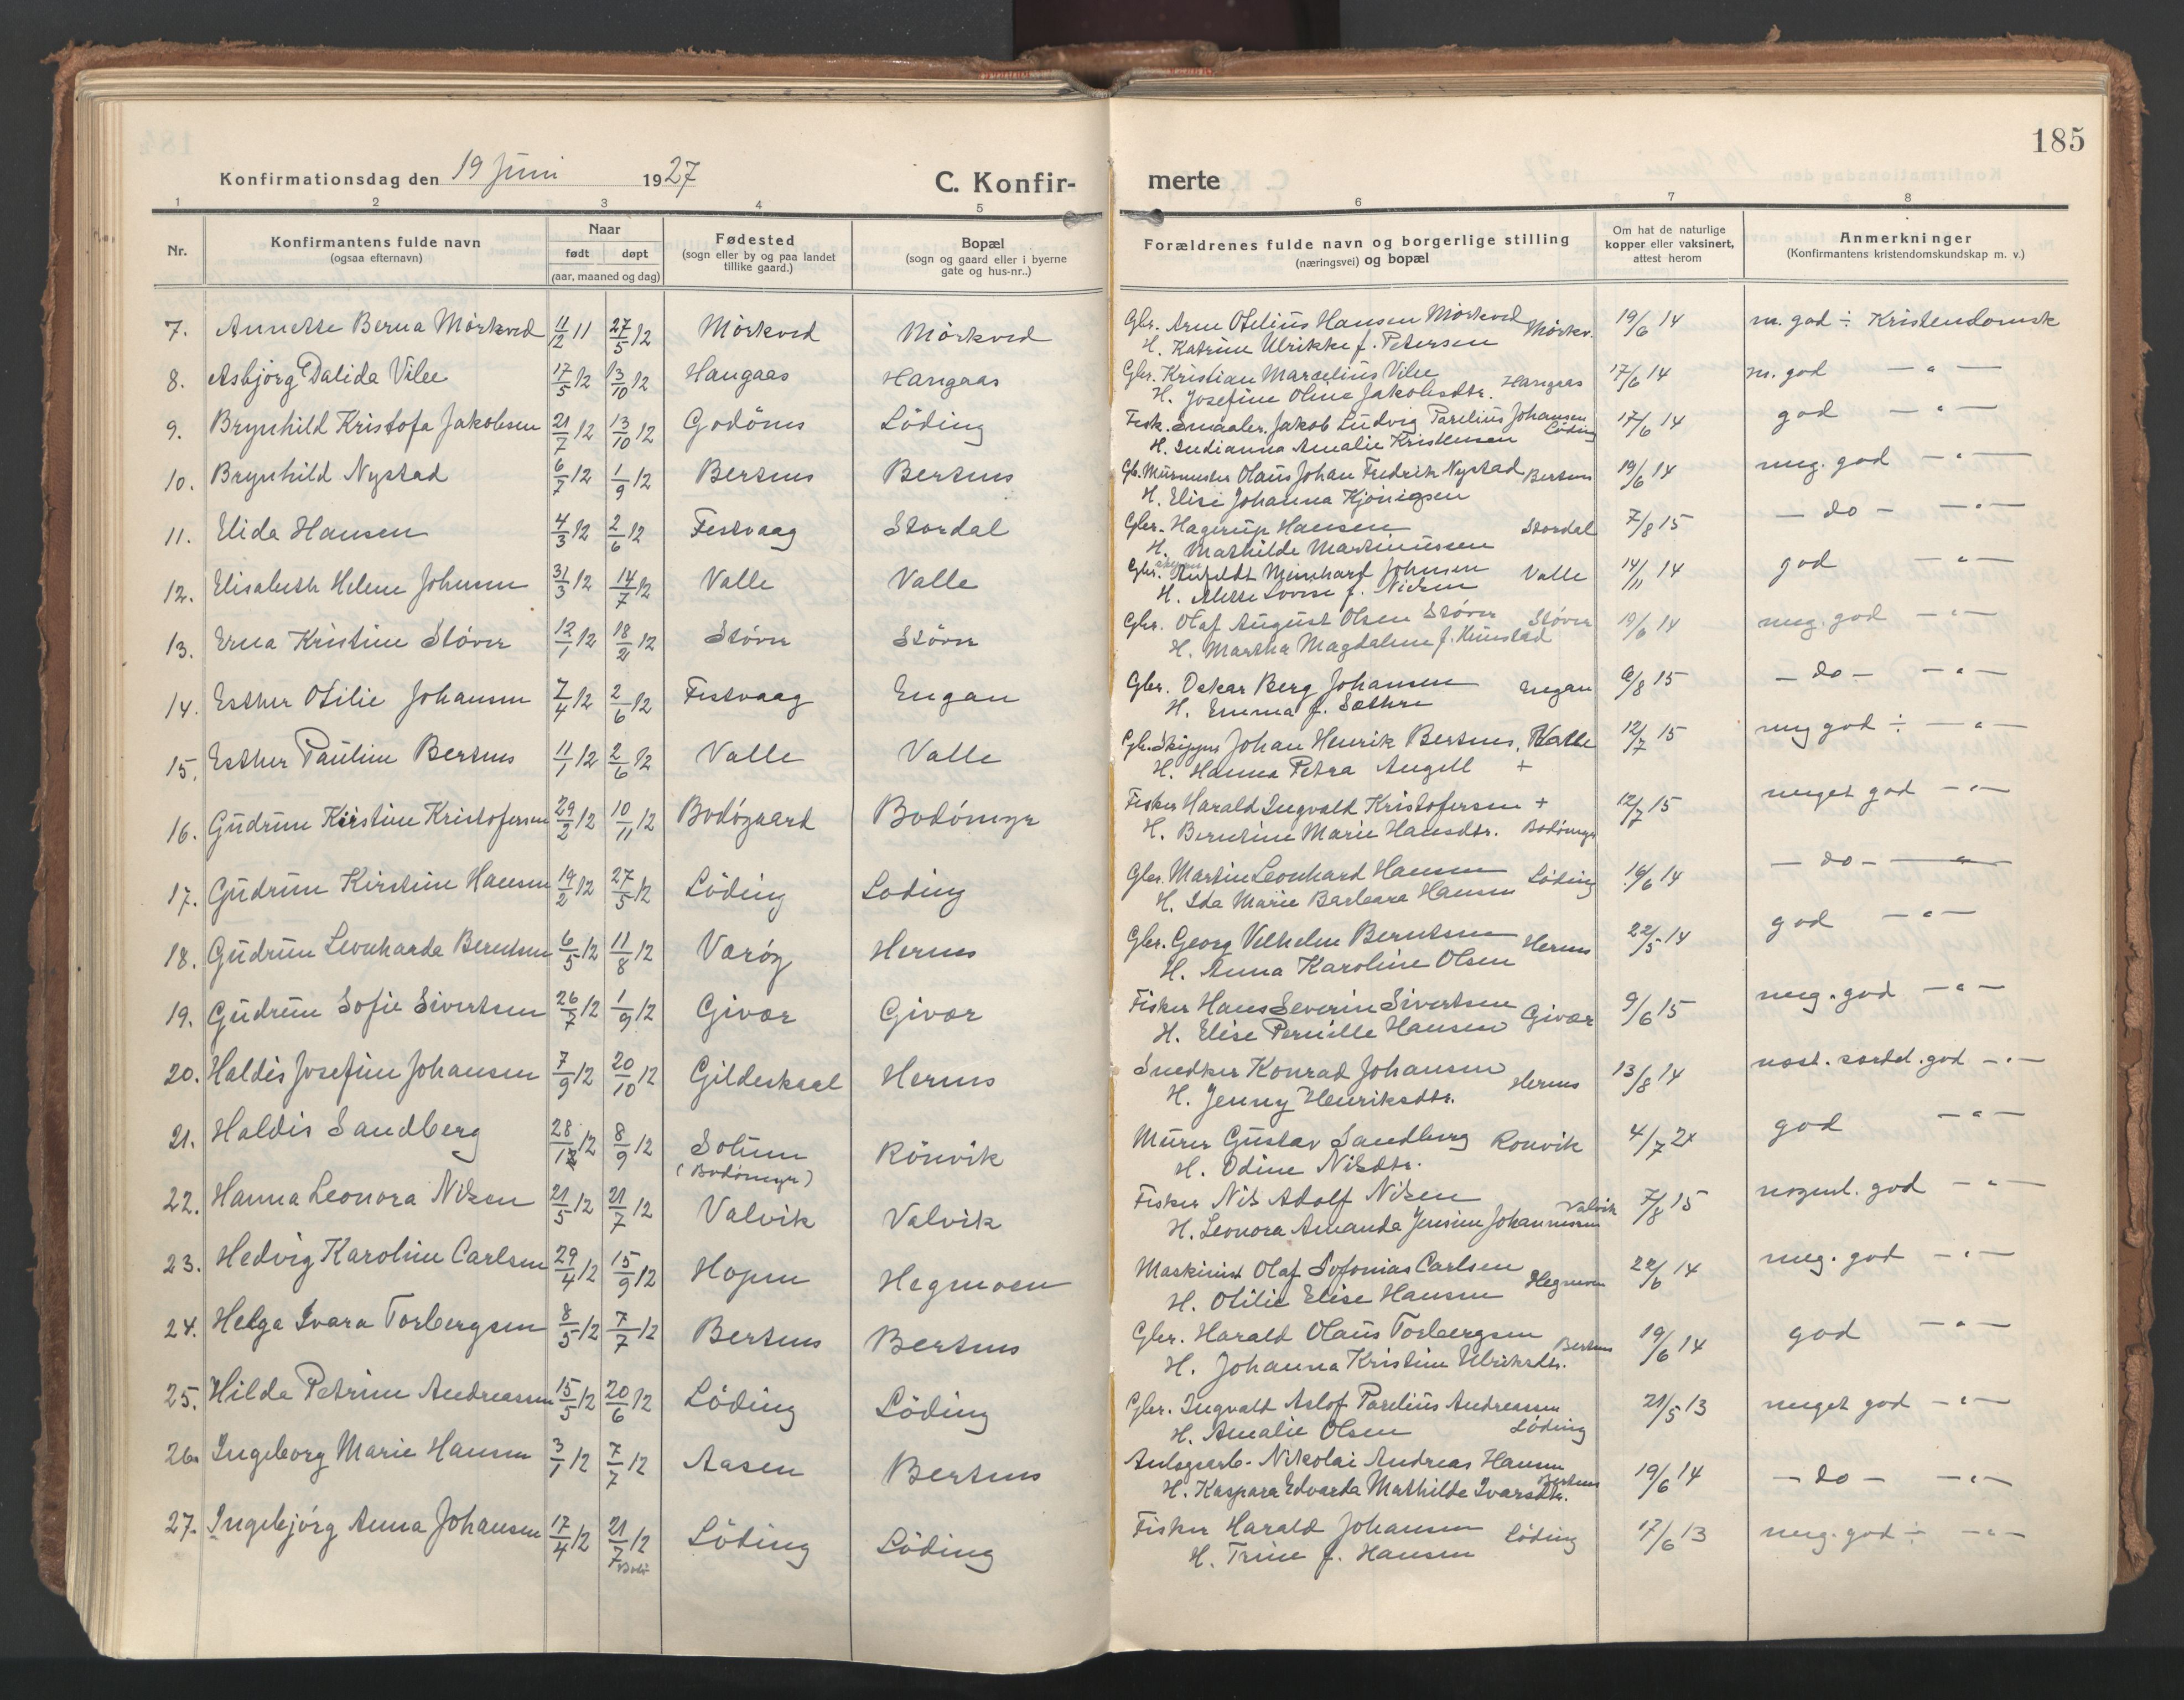 185
Konfirmationsdag den 19 Juni 1927 C. Konfir- merte
1 2 3 4 5 6 7 8
Nr. Konfirmantens fulde navn (ogsaa efternavn) Naar født døpt (aar, maaned og dag) Fødested (sogn eller by og paa landet tillike gaard.) Bopæl (sogn og gaard eller i byerne gate og hus-nr..) Forældrenes fulde navn og borgerlige stilling (næringsvei) og bopæl Om hat de naturlige kopper eller vaksinert, attest herom Anmerkninger (Konfirmantens kristendomskundskap m. v.)
7. Annette Berna Mörkved 11/12 11 27/5 12 Mörkved Mörkved Gbr. Arne Otelius Hansen Mörkved Mörkv. 19/6 14 m. god ÷ Kristendomsk
H. Katrine Ulrikke f. Petersen
8. Asbjörg Dalida Vilee 17/5 12 13/10 12 Haugaas Haugaas Gbr. Kristian Marcelius Vilee Haugaas 17/6 14 m. god — " —
H. Josefine Oline Jakobsdtr.
9. Brynhild Kristofa Jakobsen 21/7 12 13/10 12 Godönes Löding Fisk. Smaabr. Jakob Ludvig Parelius Johansen Löding 17/6 14 god — " —
H. Indianna Amalie Kristensen
10. Brynhild Nystad 6/7 12 1/9 12 Bertnes Bertnes Gb. Murmester Olaus Johan Fredrik Nystad Bertnes 19/6 14 meg. god — " —
H. Elise Johanna Kjönigsen
11. Elida Hansen 4/3 12 2/6 12 Festvaag Stordal Gbr. Hagerup Hansen Stordal 7/8 15 — do — — " —
H. Mathilde Martinussen
12. Elisabeth Helene Johnsen 31/3 12 14/7 12 Valle Valle Gbr. Meinhard Johnsen Valle 14/11 14 god — " —
H. Mette Lovise f. Nielsen
13. Erna Kristine Stöver 12/1 12 18/2 12 Stöver Stöver Gbr. Olaf August Olsen Stöver Stöver 19/6 14 meg. god — " —
H. Martha Magdalene f. Kunstad
14. Esther Otilie Johansen 7/4 12 2/6 12 Festvaag Engan Gbr. Oskar Berg Johansen Engan 6/8 15 — do — — " —
H. Emma f. Sæthre
15. Esther Pauline Bertnes 11/1 12 2/6 12 Valle Valle Gbr. Skipper Johan Henrik Bertnes, Valle 12/7 15 meg god ÷ — " —
H. Hanna Petra Angell +
16. Gudrun Kirstine Kristofersen 29/2 12 10/11 12 Bodögaard Bodömyr Fisker Harald Ingvald Kristofersen + 12/7 15 meget god — " —
H. Berntine Marie Hansdtr. Bodömyr
17. Gudrun Kirstine Hansen 19/2 12 27/5 12 Löding Löding Gbr. Martin Leonhard Hansen Löding 16/6 14 — do — — " —
H. Ida Marie Barbara Hansen
18. Gudrun Leonharda Berntsen 6/5 12 11/8 12 Væröy Hernes Gbr. Georg Velhelm Berntsen Hernes 22/5 14 god — " —
H. Anna Karoline Olsen
19. Gudrun Sofie Sivertsen 26/7 12 1/9 12 Givær Givær Fisker Hans Severin Sivertsen Givær 9/6 15 meg. god — " —
H. Elise Pernille Hansen
20. Haldis Josefine Johansen 7/9 12 20/10 12 Gildeskaal Hernes Snedker Konrad Johansen Hernes 13/8 14 god — " —
H. Jenny Henriksdtr.
21. Haldis Sandberg 28/12 12 8/9 12 Solum Rönvik Murer Gustav Sandberg Rönvik 4/7 2x god — " —
(Bodömyr) H. Odine Nilsdtr.
22. Hanna Leonora Nilsen 21/5 12 21/7 12 Valvik Valvik Fisker Nils Adolf Nilsen Valvik 7/8 15 nogenl. god — " —
H. Leonora Amanda Jensine Johannessen
23. Hedvig Karoline Carlsen 29/4 12 15/9 12 Hopen Hegmoen Maskinist Olaf Sofonias Carlsen Hegmoen 22/6 14 meg. god — " —
H. Otilie Elise Hansen
24. Helga Ivara Torbergsen 8/5 12 7/7 12 Bertnes Bertnes Gbr. Harald Olaus Torbergsen Bertnes 19/6 14 god — " —
H. Johanna Kristine Ulriksdtr.
25. Hilda Petrine Andreassen 15/5 12 20/6 12 Löding Löding Gbr. Ingvald Aslof Parelius Andreassen 21/5 13 meget god — " —
H. Amalie Olsen Löding
26. Ingeborg Marie Hansen 3/1 12 7/7 12 Aasen Bertnes Anlegsarb. Nikolai Andreas Hansen Bertnes 19/6 14 — do — — " —
H. Kaspara Edvarda Mathilde Ivarsdtr.
27. Ingebjörg Anna Johansen 17/4 12 21/7 12 Löding Löding Fisker Harald Johansen Löding 17/6 13 meg. god ÷ — " —
Bodö H. Trine f. Hansen